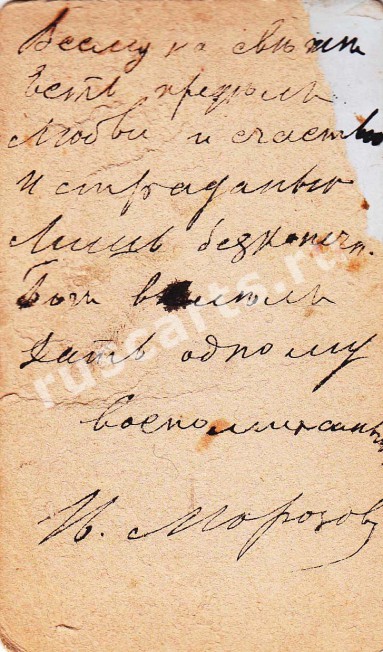 Всему на свѣте
Есть предѣлъ
Любви и счастью
И страданью
Лишь безконечн.
Богъ велѣлъ
Дать одному
Воспоминанью
И. Морозов
ruscarts.ru